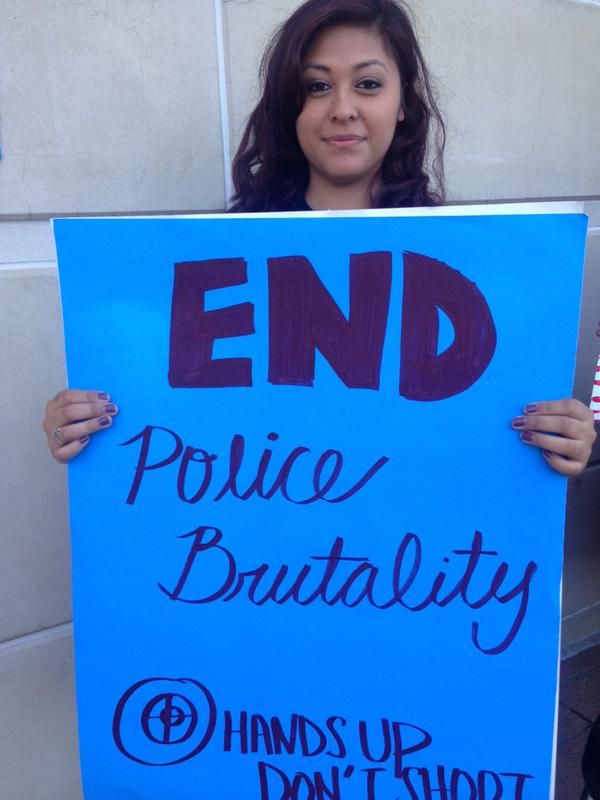 END
Police
Brutality
HANDS UP
DON'T SHOOT